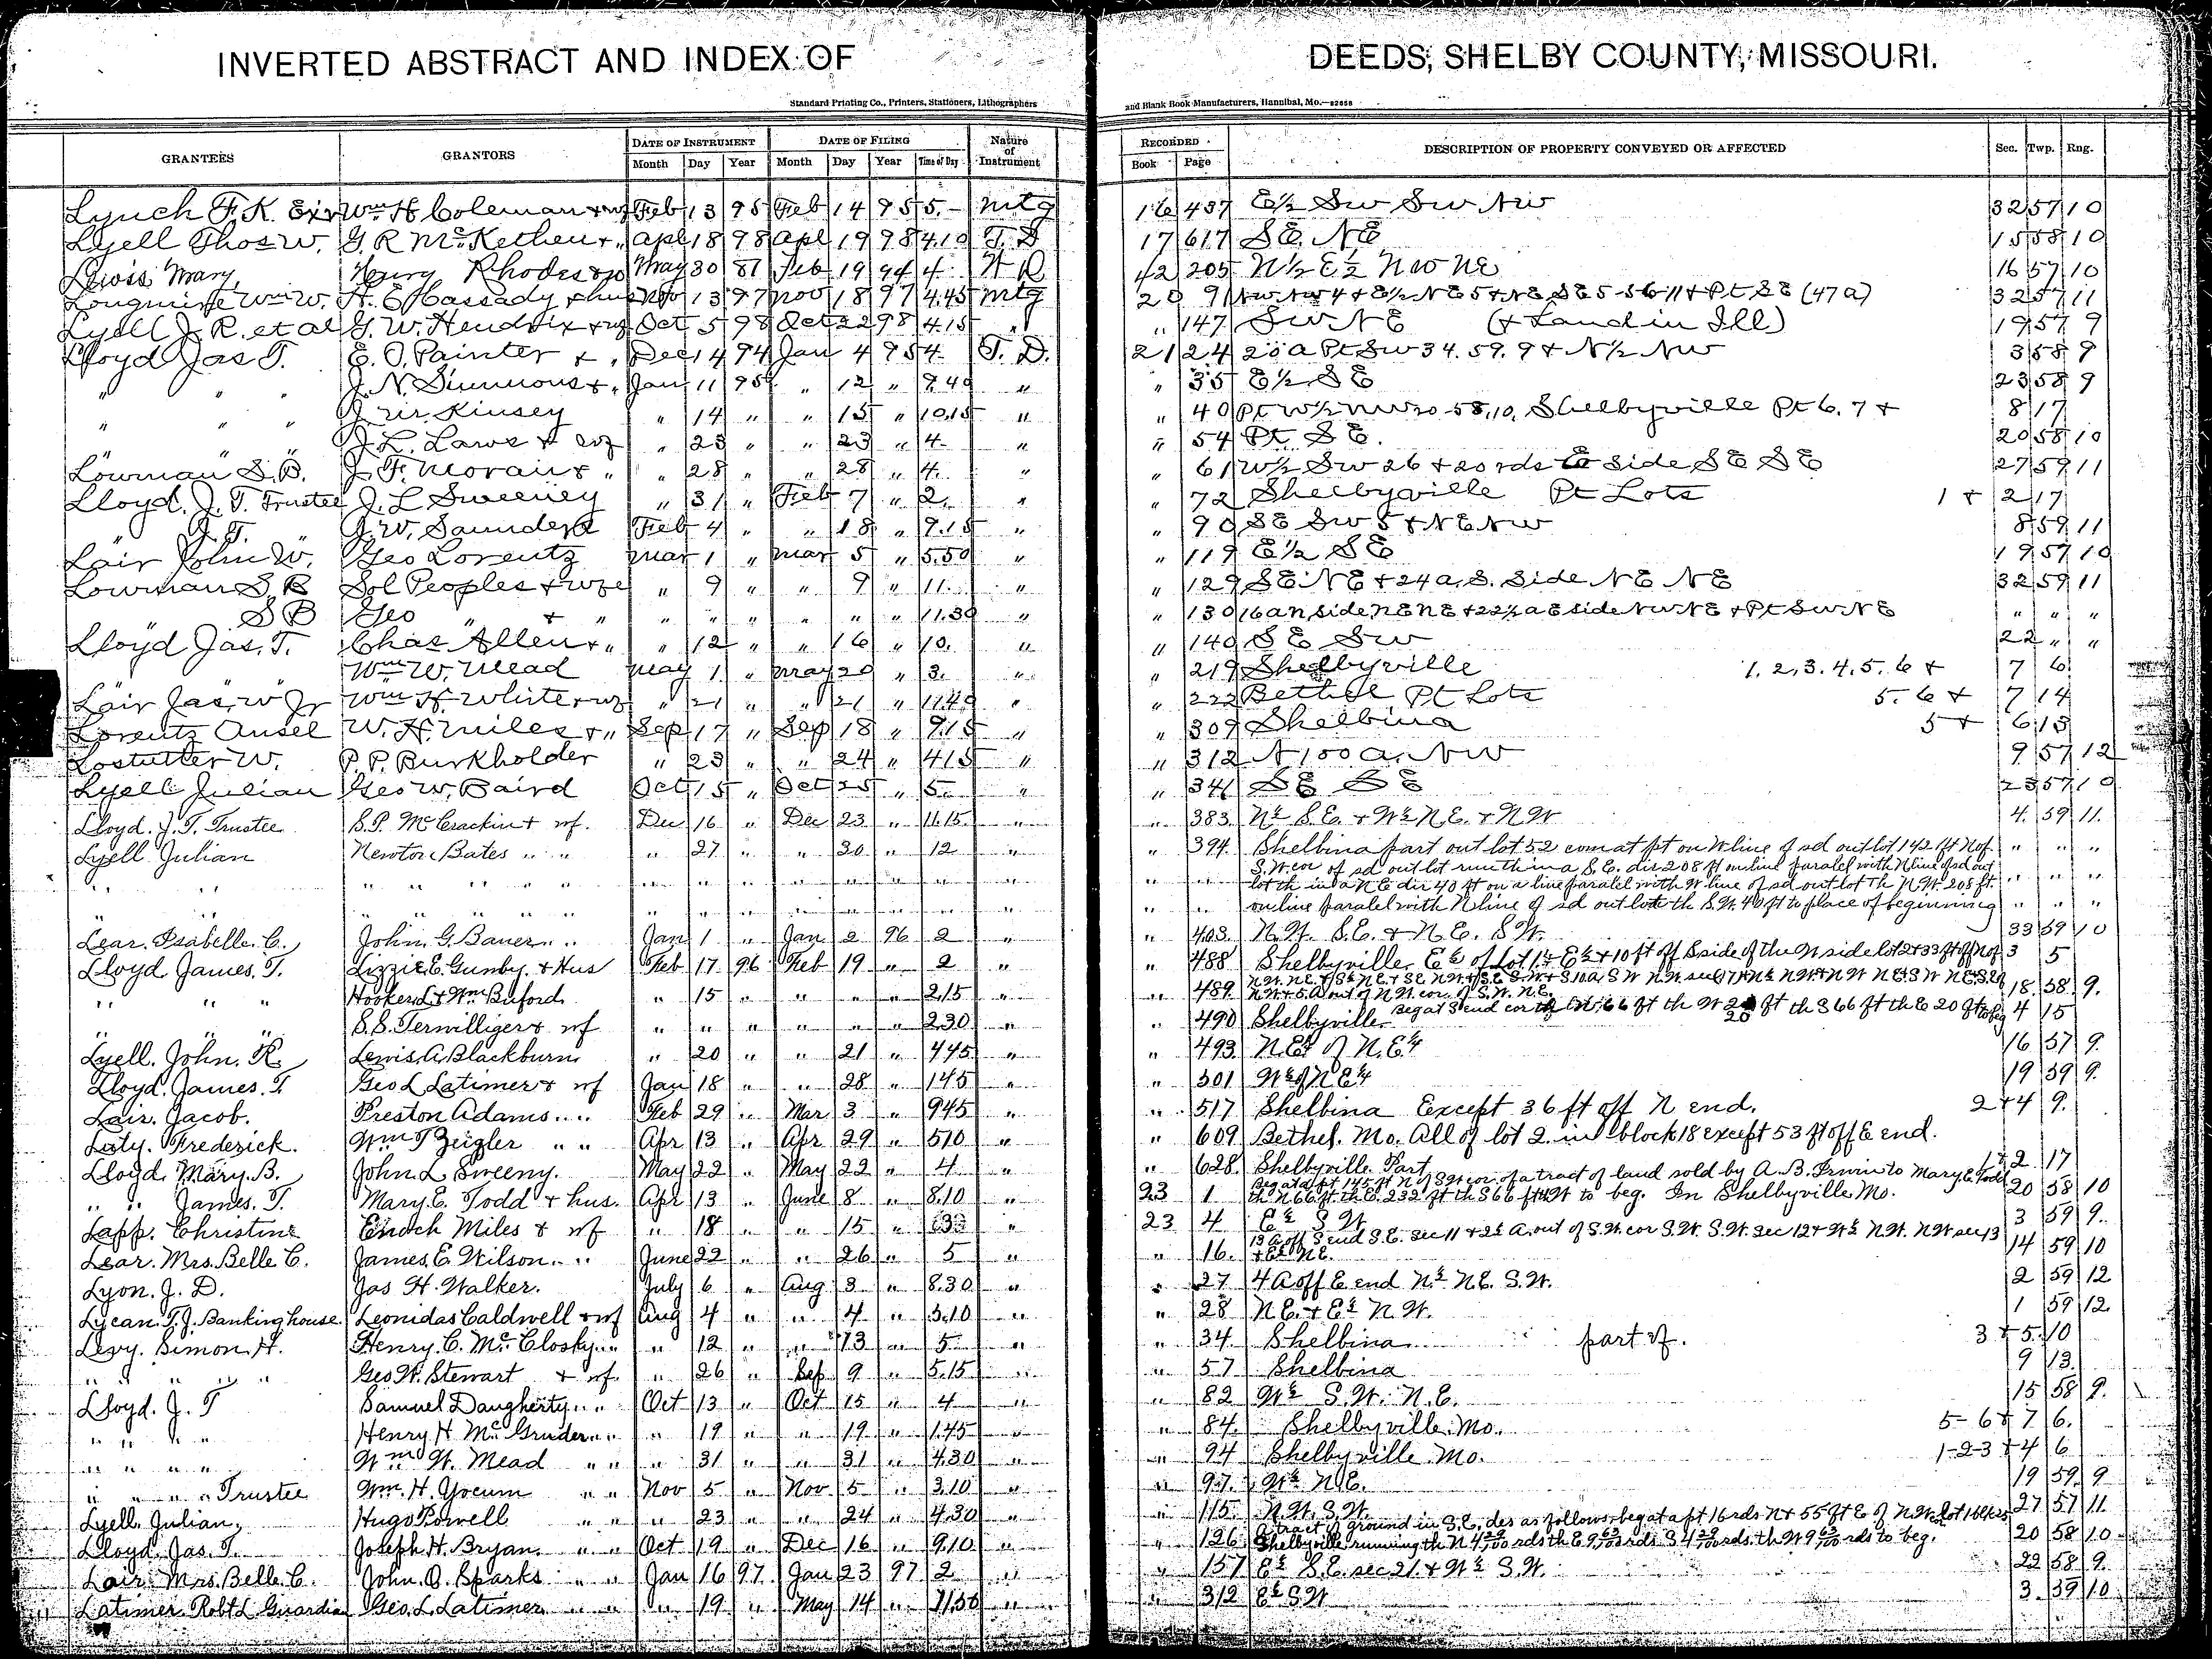 INVERTED ABSTRACT AND INDEX OF DEEDS, SHELBY COUNTY, MISSOURI.
Standard Printing Co., Printers, Stationers, Lithographers and Blank Book Manufacturers, Hannibal, Mo.—82658
GRANTEES GRANTORS DATE OF INSTRUMENT DATE OF FILING Nature of Instrument RECORDED DESCRIPTION OF PROPERTY CONVEYED OR AFFECTED Sec. Twp. Rng.
Month Day Year Month Day Year Time of Day Book Page
Lynch F. K. Exr Wm H Coleman + wf Feb 13 95 Feb 14 95 5.- Mtg 16 437 E½ SW SW NW 32 57 10
Lyell Thos W. G. R McKethen + " Apl 18 98 Apl 19 98 4.10 T. D 17 617 SE. NE 15 58 10
Lewis Mary, Henry Rhodes May 30 81 Feb 19 94 4 W D 42 205 N½ E½ NW NE 16 57 10
Wm W. H. E Cassady + hus Nov 13 97 Nov 18 97 4.45 Mtg 20 91 NW NW 4 + E½ NE 5 + NE SE 5-56-11 + Pt SE (47 a) 32 57 11
Lyell J. R. et al G. W. Hendrix + wf Oct 5 98 Oct 22 98 4.15 " " 147 SW NE (+ Land in Ill) 19 57 9
Lloyd Jas T. E. O. Painter + " Dec 14 94 Jan 4 95 4. T. D. 21 24 20 a Pt SW 34. 59. 9 + N½ NW 3 58 9
" " " J. N. Simmons + " Jan 11 95 " 12 " 9.40 " " 35 E½ SE 23 58 9
" " " Kinsey " 14 " " 15 " 10.15 " " 40 Pt W½ NW 20 58.10. Shelbyville Pt 6. 7 + 8 17
" " " J. L. Laws + wf " 23 " " 23 " 4- " " 54 Pt. SE. 20 58 10
Lowman S. B. J. F. Moran + " " 28 " " 28 " 4. " " 61 W½ SW 26 + 20 rds E side SE SE 27 59 11
Lloyd. J. T. Trustee J. L Sweeney " 31 " Feb 7 " 2. " " 72 Shelbyville Pt Lots 1 + 2 17
" J. T. J. W. Saunders Feb 4 " " 18 " 9.15 " " 90 SE SW 5 + NE NW 8 59 11
Lair John W. Geo Lorentz Mar 1 " Mar 5 " 5.50 " " 119 E½ SE 19 57 10
Lowman S. B Sol Peoples + wf " 9 " " 9 " 11. " " 129 SE NE + 24 a, S. Side NE NE 32 59 11
" S B Geo " + " " " " " " " 11.30 " " 130 16 a N side NE NE + 22½ a E side NW NE + Pt SW NE " " "
Lloyd Jas. T. Chas Allen + " " 12 " " 16 " 10. " " 140 SE SW 22 " "
Wm W. Mead May 1 " May 20 " 3. " " 219 Shelbyville 1. 2. 3. 4. 5. 6 + 7 6
Lair Jas. W Jr Wm H. White + wf " 21 " " 21 " 11.40 " " 222 Bethel Pt Lots 5. 6 + 7 14
Lorentz Ansel W. H. Miles + " Sep 17 " Sep 18 " 9.15 " " 309 Shelbina 5 + 6 13
Lostutter W. P. P. Burkholder " 23 " " 24 " 4.15 " " 312 N 100 a. NW 9 57 12
Lyell Julian Geo W. Baird Oct 15 " Oct 25 " 5- " " 341 SE SE 23 57 10
Lloyd. J. T. Trustee S. P. McCrackin + wf. Dec 16 " Dec 23 " 11.15 " " 383 N½ S.E. + W½ N.E. + N W 4. 59 11.
Lyell Julian Newton Bates " " " 27 " " 30 " 12 " " 394 Shelbina part out lot 52 com at pt on W line of sd outlot 142 ft N of " " "
" " " " " " " " " " " " " " " " S.W. cor of sd out lot run th in a S.E. dir 208 ft on line paralel with N line of sd out
lot th in a N E dir 40 ft on a line paralel with W. line of sd out lot Th N.W. 208 ft. " " "
" " " " " " " " " " " " " " " " on line paralel with N line of sd out lot th S.W. 40 ft to place of beginning " " "
Lear. Isabelle. C. John. G. Bauer " " Jan 1 " Jan 2 96 2 " " 403. N.W. S.E. + N.E. S.W. 33 59 10
Lloyd. James. T. Lizzie E. Gunby. + Hus Feb 17 96 Feb 19 " 2 " " 488 Shelbyville. E½ of Lot 1 + E½ + 10 ft off S side of the N side lot 2 + 33 ft off N of 3 5
" " " Hooker L + Wm Buford " 15 " " " " 2.15 " 489. 18. 58. 9.
N W + 5. A out of N.W. cor. of S.W. N.E.
" " " S. S. Terwilliger + wf " " " " " " 2.30 " " 490 Shelbyville Beg at S end cor th N. 66 ft th W 20 ft th S 66 ft th E 20 ft to beg 4 15
Lyell. John. R. Lewis. A Blackburn " 20 " " 21 " 4.45 " " 493 N.E¼ of N.E¼ 16 57 9.
Lloyd. James. T. Geo L Latimer + wf Jan 18 " " 28 " 1.45 " " 501 W½ of N E¼ 19 59 9.
Lair. Jacob. Preston Adams " " Feb 29 " Mar 3 " 9.45 " " 517 Shelbina Except 36 ft off N end. 2+4 9.
Frederick. Wm T Zeigler " " Apr 13 " Apr 29 " 5.10 " " 609 Bethel. Mo. All of lot 2. in block 18 except 53 ft off E end.
Lloyd. Mary. B. John. L Sweeny. May 22 " May 22 " 4 " " 628. Shelbyville. Part 1+2 17
" " James. T. Mary. E. Todd + hus. Apr 13 " June 8 " 8.10 " 23 1 Beg at a pt 145 ft N of S W cor. of a tract of land sold by A. B. Irwin to Mary. E. Todd 20 58 10
th N 66 ft th E. 232 ft th S 66 ft th W to beg. In Shelbyville Mo.
Lapp. Christine Enoch Miles + wf " 18 " " 15 " " 23 4. E½ S W. 3 59 9.
Lear. Mrs. Belle C. James. E. Wilson. " " June 22 " " 26 " 5 " " 16. 13 A off S end S.E. sec 11 + 2½ A. out of S.W. cor S.W. S.W. sec 12 + W½ N.W. N W sec 13 14 59 10
+ E½ N.E.
Lyon. J. D. Jas H. Walker. July 6 " Aug 3 " 8.30 " " 27 4 A off E end N½ N.E. S.W. 2 59 12
Lycan. T. J. Banking house Leonidas Caldwell + wf Aug 4 " " 4 " 3.10 " " 28 N.E. + E½ N W. 1 59 12.
Levy. Simon. H. Henry. C. McClosky " " " 12 " " 13 " 5 " " 34. Shelbina part of. 3 + 5. 10
" " " " Geo W. Stewart + wf. " 26 " Sep 9 " 5.15 " " 57 Shelbina 9 13.
Lloyd. J. T Samuel Daugherty " " Oct 13 " Oct 15 " 4 " " 82 W½ S.W. N.E. 15 58 9.
" " " " Henry. H McGruder " " " 19 " " 19 " 1.45 " " 84. Shelbyville. Mo. 5-6+7 6.
" " " " Wm W. Mead " " " 31 " " 31 " 4.30 " " 94 Shelbyville Mo. 1-2-3+4 6
" " " " Trustee Wm. H. Yocum " " Nov 5 " Nov 5 " 3.10 " " 97. W½ N.E. 19 59 9
Lyell. Julian, Hugo Powell " " " 23 " " 24 " 4.30 " " 115. N.W. S.W. 27 57 11.
Lloyd. Jas. T. Joseph. H. Bryan. " " Oct 19 " Dec 16 " 9.10 " " 126 A tract of ground in S.E. des as follows, beg at a pt 16 rds N + 55 ft E of N.W. lot 1 20 58 10
Shelbyville running th N 4 29/100 rds th E 9 63/100 rds. S 4 29/100 rds. th W 9 63/100 rds to beg.
Lair. Mrs. Belle C. John. O. Sparks " " Jan 16 97 Jan 23 97 2 " " 157 E½ S.E. sec 21. + W½ S.W. 22 58 9.
Latimer Robt L Guardian Geo. L. Latimer " " " 19 " May 14 " 11.50 " " 312 E½ S W 3. 59 10